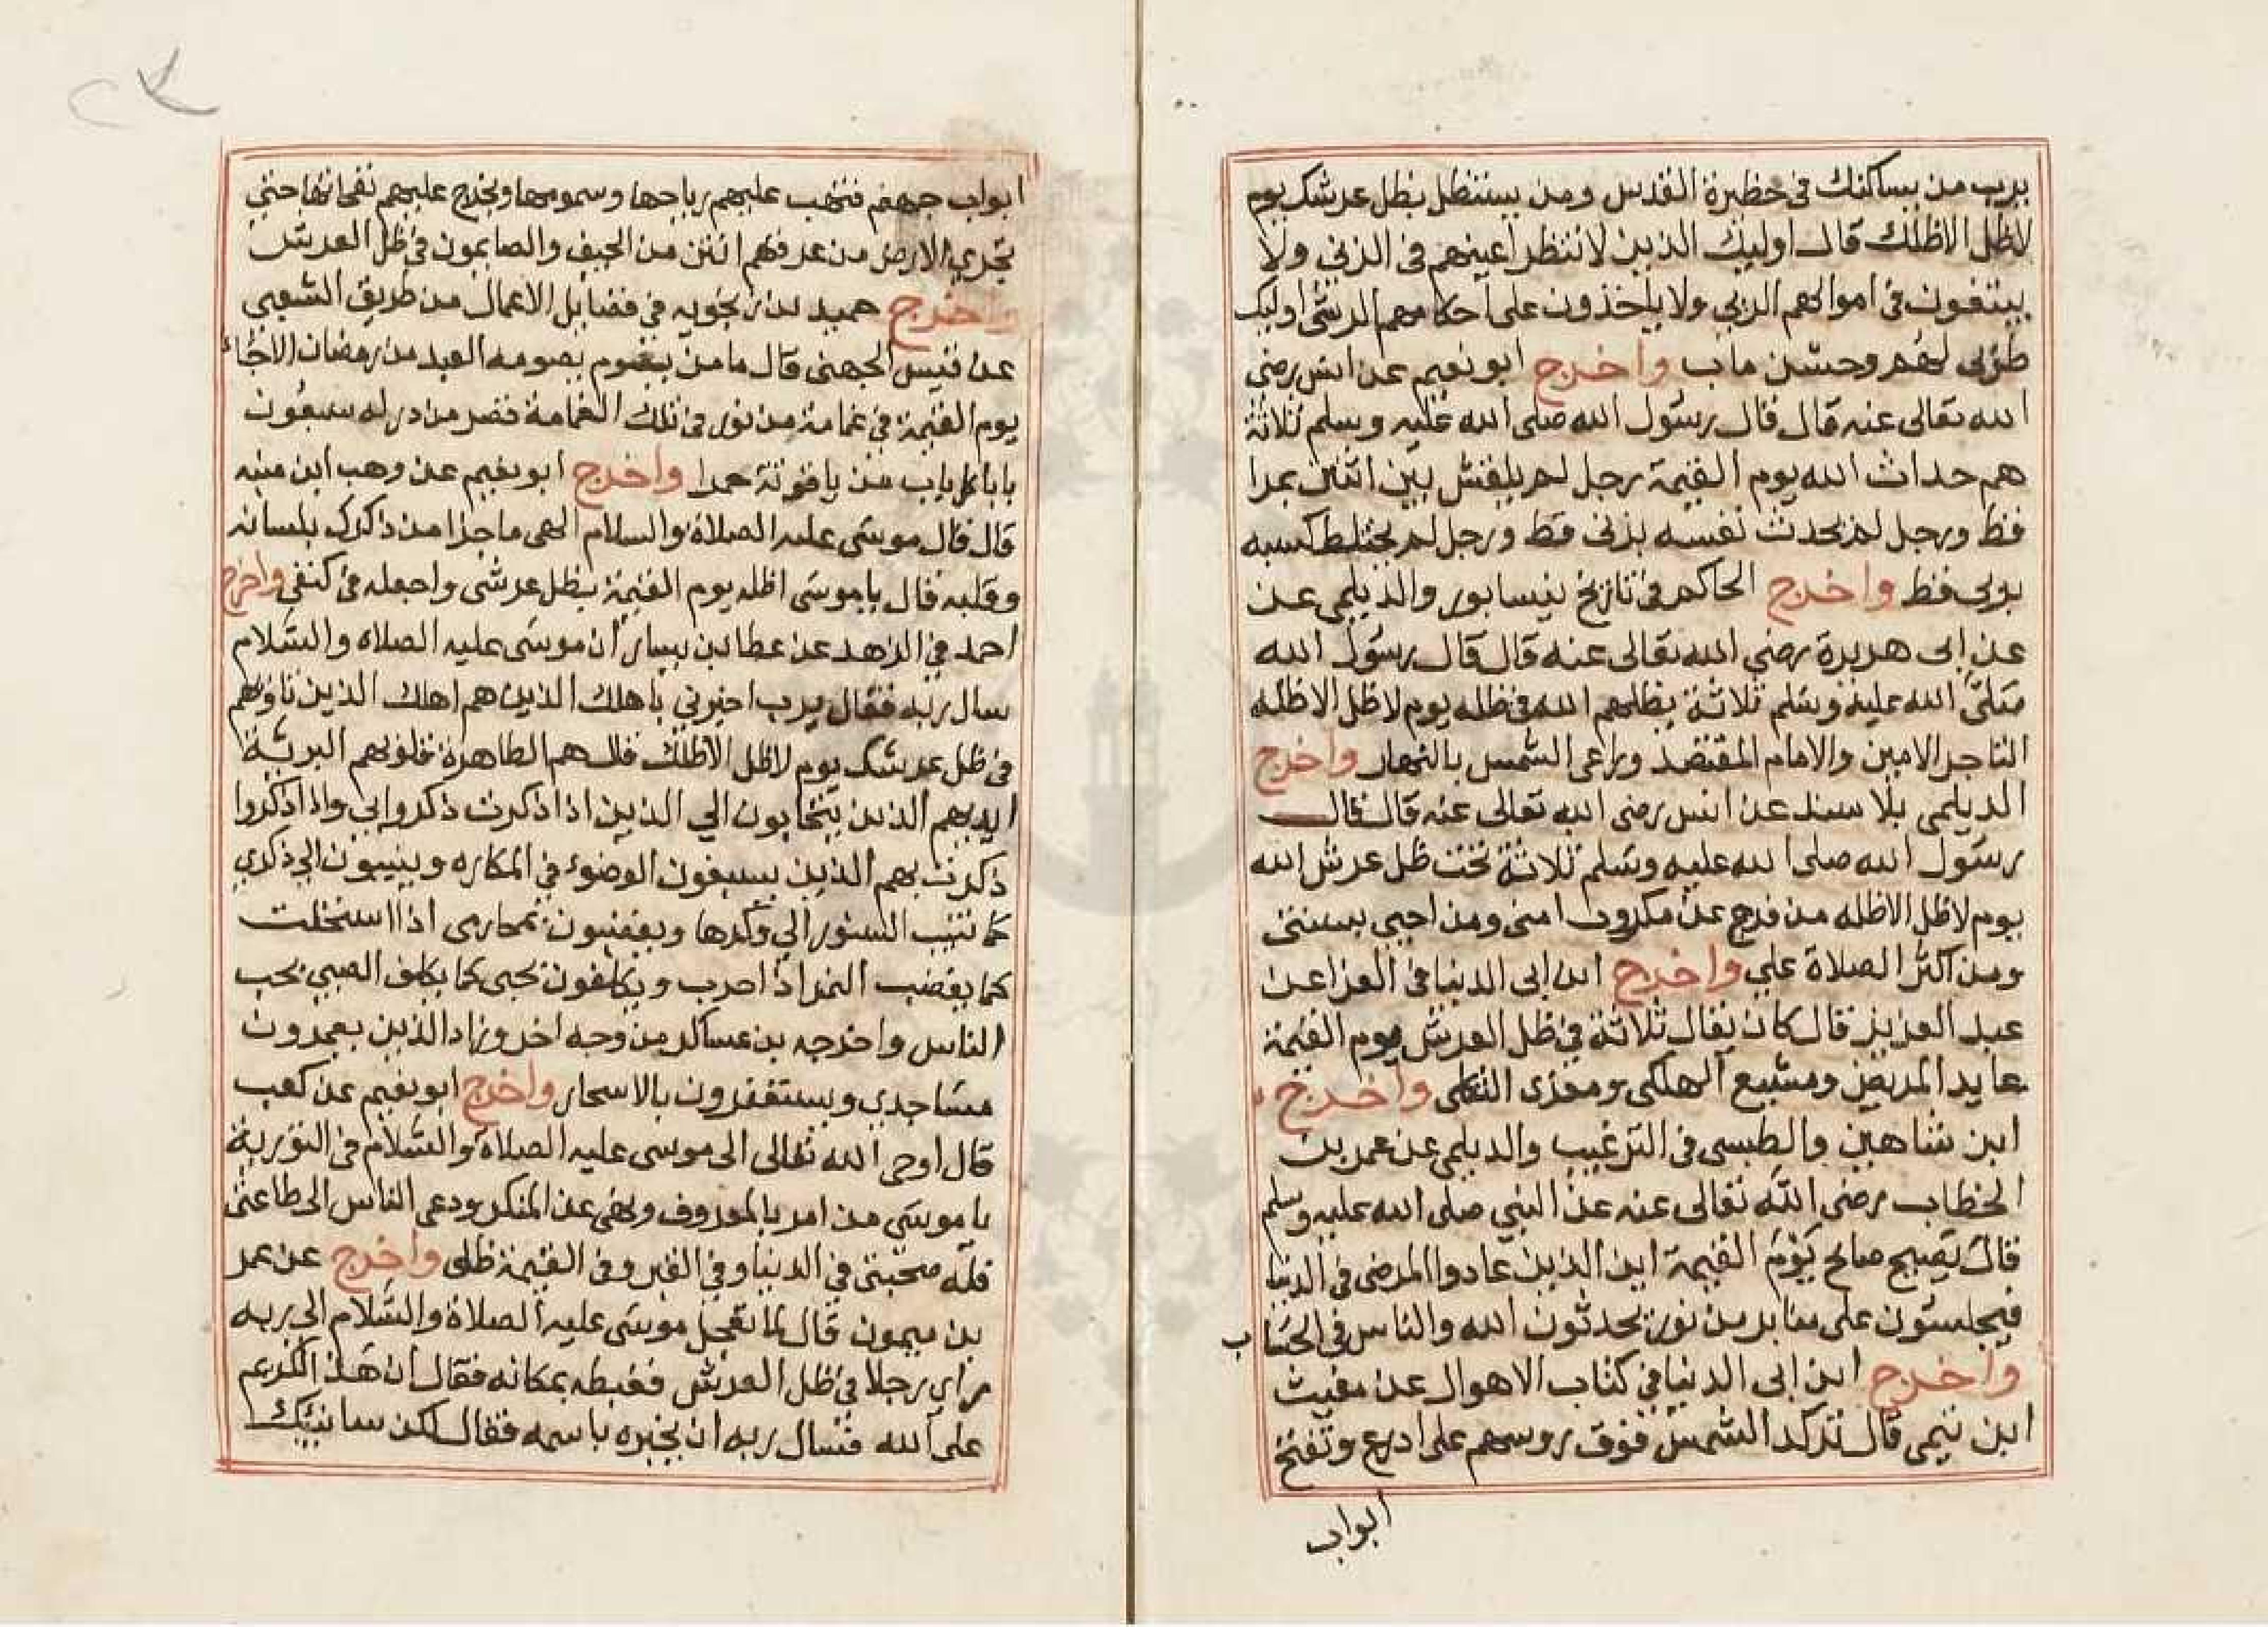 يرب من يساكنك في حظيرة القدس ومن يستظل بظل عرشك يوم
لا ظل الا ظلك قال اوليك الذين لا تنظر اعينهم في الزني ولا
يبتغون في اموالهم الربي ولا ياخذون على احكامهم الرشى اوليك
طوبى لهم وحسن ماب واخرج ابو نعيم عن انس رضي
الله تعالى عنه قال قال رسول الله صلى الله عليه وسلم ثلاثة
هم حداث الله يوم القيمة رجل لم يمش بين اثنين بمرا
قط ورجل لم يحدث نفسه بزنى قط ورجل لم يختلط كسبه
بربى قط واخرج الحاكم في تاريخ نيسابور والديلمي عن
عن ابى هريرة رضي الله تعالى عنه قال قال رسول الله
صلى الله عليه وسلم ثلاثة يظلهم الله في ظله يوم لا ظل الا ظله
التاجر الامين والامام المقتصد وراعى الشمس بالنهار واخرج
الديلمي بلا سند عن انس رضى الله تعالى عنه قال قال
رسول الله صلى الله عليه وسلم ثلاثة تحت ظل عرش الله
يوم لا ظل الا ظله من فرج عن مكروب امتى ومن احيى بسنتى
ومن اكثر الصلاة علي واخرج ابن ابى الدنيا في العزا عن
عبد العزيز قال كان يقال ثلاثة في ظل العرش يوم القيمة
عايد المريض ومشيع الهلكى ومعزى الثكلى واخرج
ابن شاهين والطبسى في الترغيب والديلمي عن عمر بن
الخطاب رضى الله تعالى عنه عن النبي صلى الله عليه وسلم
قال يصيح صالح يوم القيمة اين الذين عادوا المرضى في الدنيا
فيجلسون على منابر من نور يحدثون الله والناس في الحساب
واخرج ابن ابى الدنيا في كتاب الاهوال عن مغيث
ابن تيمي قال تركد الشمس فوق روسهم على ادرع وتفتح
ابواب
ابواب جهنم فتهب عليهم رياحها وسمومها ويخرج عليهم نفحاتها حتى
تجري الارض من عرقهم انتن من الجيف والصايمون في ظل العرش
واخرج حميد بن زنجويه في فضايل الاعمال من طريق الشعبي
عن قيس الجهنى قال ما من يقوم يصومه العبد من رمضان الا جاء
يوم القيمة في غمامة من نور في تلك الغمامة قصر من در له سبعون
بابا كل باب من ياقوتة حمرا واخرج ابو نعيم عن وهب ابن منبه
قال قال موسى عليه الصلاة والسلام الهى ما جزا من ذكرك بلسانه
وقلبه قال يا موسى اظله يوم القيمة بظل عرشى واجعله في كنفي واخرج
احمد في الزهد عن عطا بن يسار ان موسى عليه الصلاه والسلام
سال ربه فقال يرب اخبرني باهلك الذين هم اهلك الذين تاويهم
في ظل عرشك يوم لا ظل الا ظلك قال هم الطاهرة قلوبهم البرئة
ايديهم الذين يتحابون الي الذين اذا ذكرت ذكروا بي واذا ذكروا
ذكرت بهم الذين يسبغون الوضوء في المكاره وينيبون الى ذكري
كما تنيب النسور الي وكرها ويغضبون بمحارمى اذا استحلت
كما يغضب النمر اذا احرب ويكلفون بحبى كما يكلف الصبي بحب
الناس واخرجه بن عساكر من وجه اخر وزاد الذين يعمرون
مساجدي ويستغفرون بالاسحار واخرج ابو نعيم عن كعب
قال اوحى الله تعالى الى موسى عليه الصلاة والسلام في التورية
يا موسى من امر بالمعروف ونهى عن المنكر ودعى الناس الى طاعتى
فله صحبتى في الدنيا وفي القبر وفي القيمة ظلى واخرج عن عمر
بن ميمون قال لما تعجل موسى عليه الصلاة والسلام الى ربه
راي رجلا في ظل العرش فغبطه بمكانه فقال ان هذا لكريم
على الله فسال ربه ان يخبره باسمه فقال لكن سانبيك